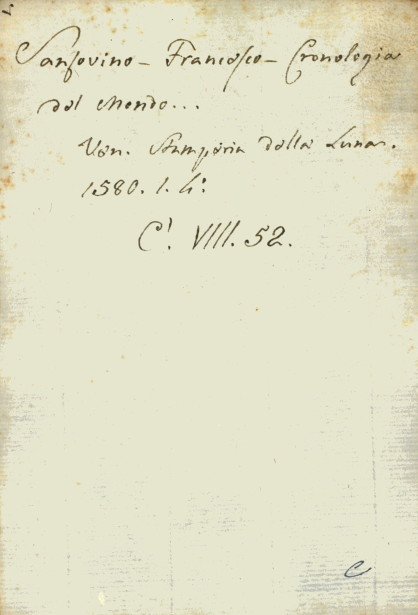 Sansovino - Francesco - Cronologia
del Mondo...
Ven. Stamperia della Luna.
1580. 1. 4°.
C'. VIII. 52.
C